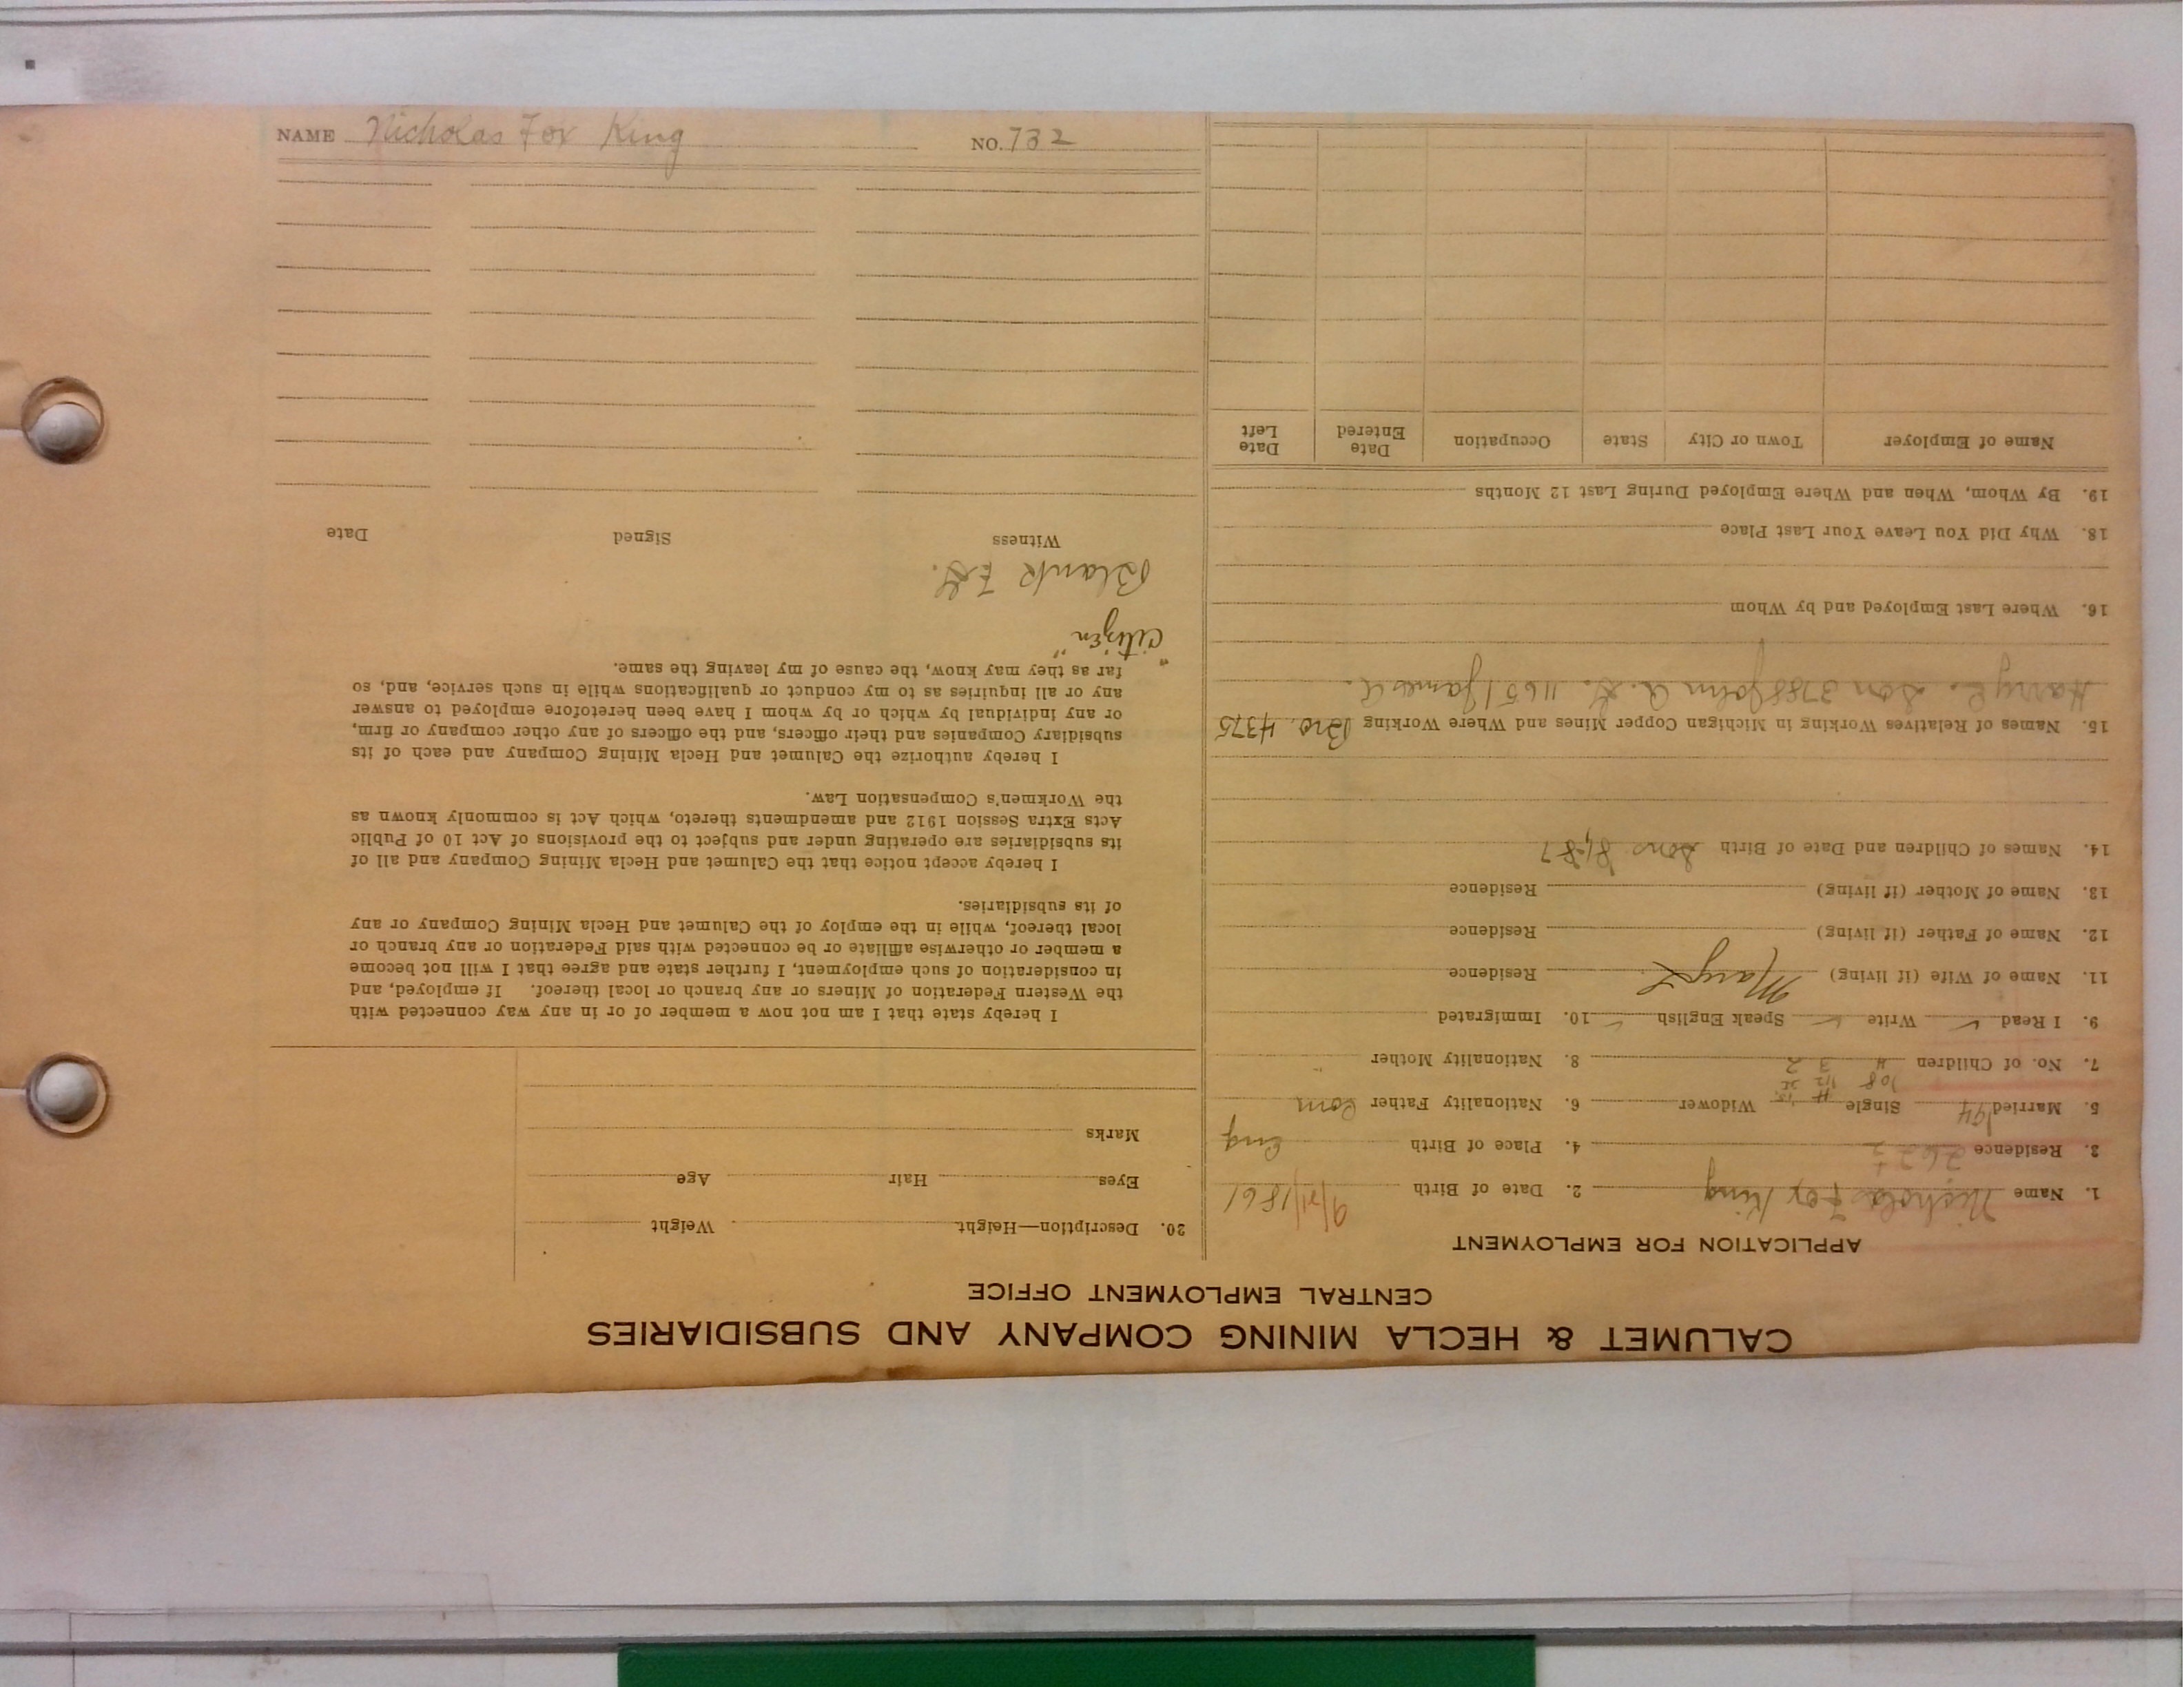 NAME Nicholas Fox King NO. 732
CALUMET & HECLA MINING COMPANY AND SUBSIDIARIES
CENTRAL EMPLOYMENT OFFICE
APPLICATION FOR EMPLOYMENT
1. Name Nicholas Fox King 2. Date of Birth 9/21/1861
3. Residence 4. Place of Birth Eng
5. Married Single Widower 6. Nationality Father Corn
7. No. of Children 4 3 2 8. Nationality Mother
9. I Read ✓ Write ✓ Speak English ✓ 10. Immigrated
11. Name of Wife (if living) Mary Residence
12. Name of Father (if living) Residence
13. Name of Mother (if living) Residence
14. Names of Children and Date of Birth Sons
15. Names of Relatives Working in Michigan Copper Mines and Where Working Bro. 4375
Harry E. Son 3788 John A. 11651 James A.
16. Where Last Employed and by Whom
18. Why Did You Leave Your Last Place
19. By Whom, When and Where Employed During Last 12 Months
Name of Employer Town or City State Occupation Date Entered Date Left
20. Description—Height Weight
Eyes Hair Age
Marks
I hereby state that I am not now a member of or in any way connected with
the Western Federation of Miners or any branch or local thereof. If employed, and
in consideration of such employment, I further state and agree that I will not become
a member or otherwise affiliate or be connected with said Federation or any branch or
local thereof, while in the employ of the Calumet and Hecla Mining Company or any
of its subsidiaries.
I hereby accept notice that the Calumet and Hecla Mining Company and all of
its subsidiaries are operating under and subject to the provisions of Act 10 of Public
Acts Extra Session 1912 and amendments thereto, which Act is commonly known as
the Workmen's Compensation Law.
I hereby authorize the Calumet and Hecla Mining Company and each of its
subsidiary Companies and their officers, and the officers of any other company or firm,
or any individual by which or by whom I have been heretofore employed to answer
any or all inquiries as to my conduct or qualifications while in such service, and, so
far as they may know, the cause of my leaving the same.
"Citizen"
Blank
Witness Signed Date